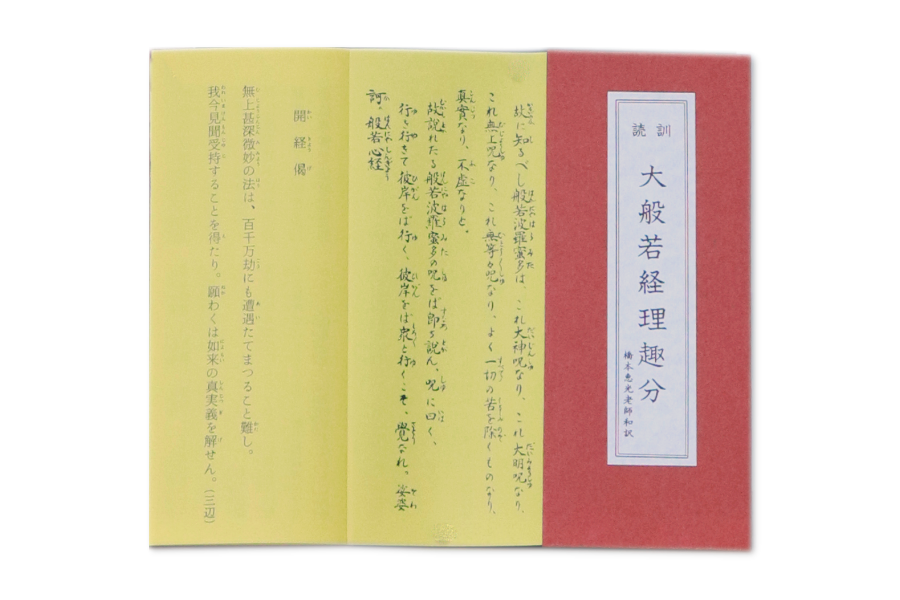 訓読
大般若経理趣分
橋本恵光老師和訳
故に知るべし般若波羅蜜多は、これ大神呪なり、これ大明呪なり、
これ無上呪なり、これ無等々呪なり、よく一切の苦を除くものなり、
真實なり、不虚なりと。
故説れたる般若波羅蜜多の呪をば即ち説ん、呪に曰く、
行き行きて彼岸をば行く、彼岸をば衆と行くこそ、覺なれ。娑婆
訶・般若心経
開経偈
無上甚深微妙の法は、百千万劫にも遭遇たてまつること難し。
我今見聞受持することを得たり。願わくは如来の真実義を解せん。(三辺)